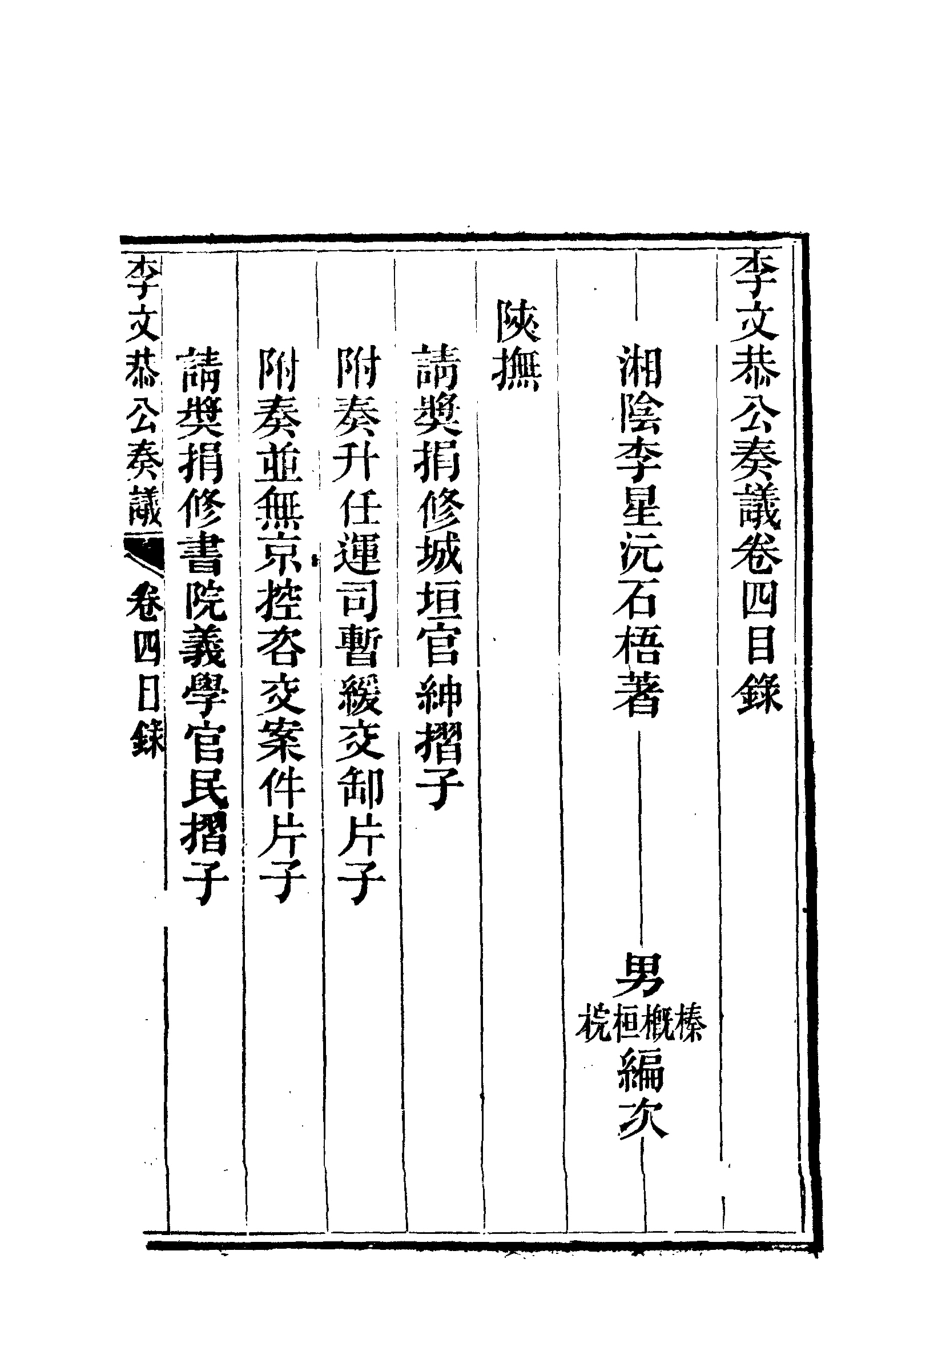 李文恭公奏議卷四目錄
湘陰李星沅石梧著
男榛概桓梡編次
陝撫
請獎捐修城垣官紳摺子
附奏升任運司暫緩交卸片子
附奏並無京控咨交案件片子
請獎捐修書院義學官民摺子
李文恭公奏議
卷四目錄